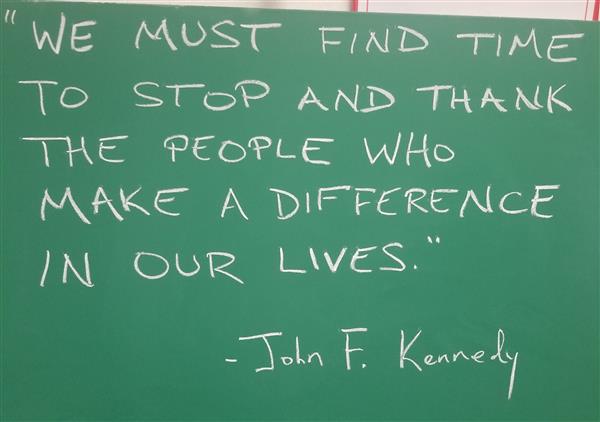 "WE MUST FIND TIME
TO STOP AND THANK
THE PEOPLE WHO
MAKE A DIFFERENCE
IN OUR LIVES."
- John F. Kennedy